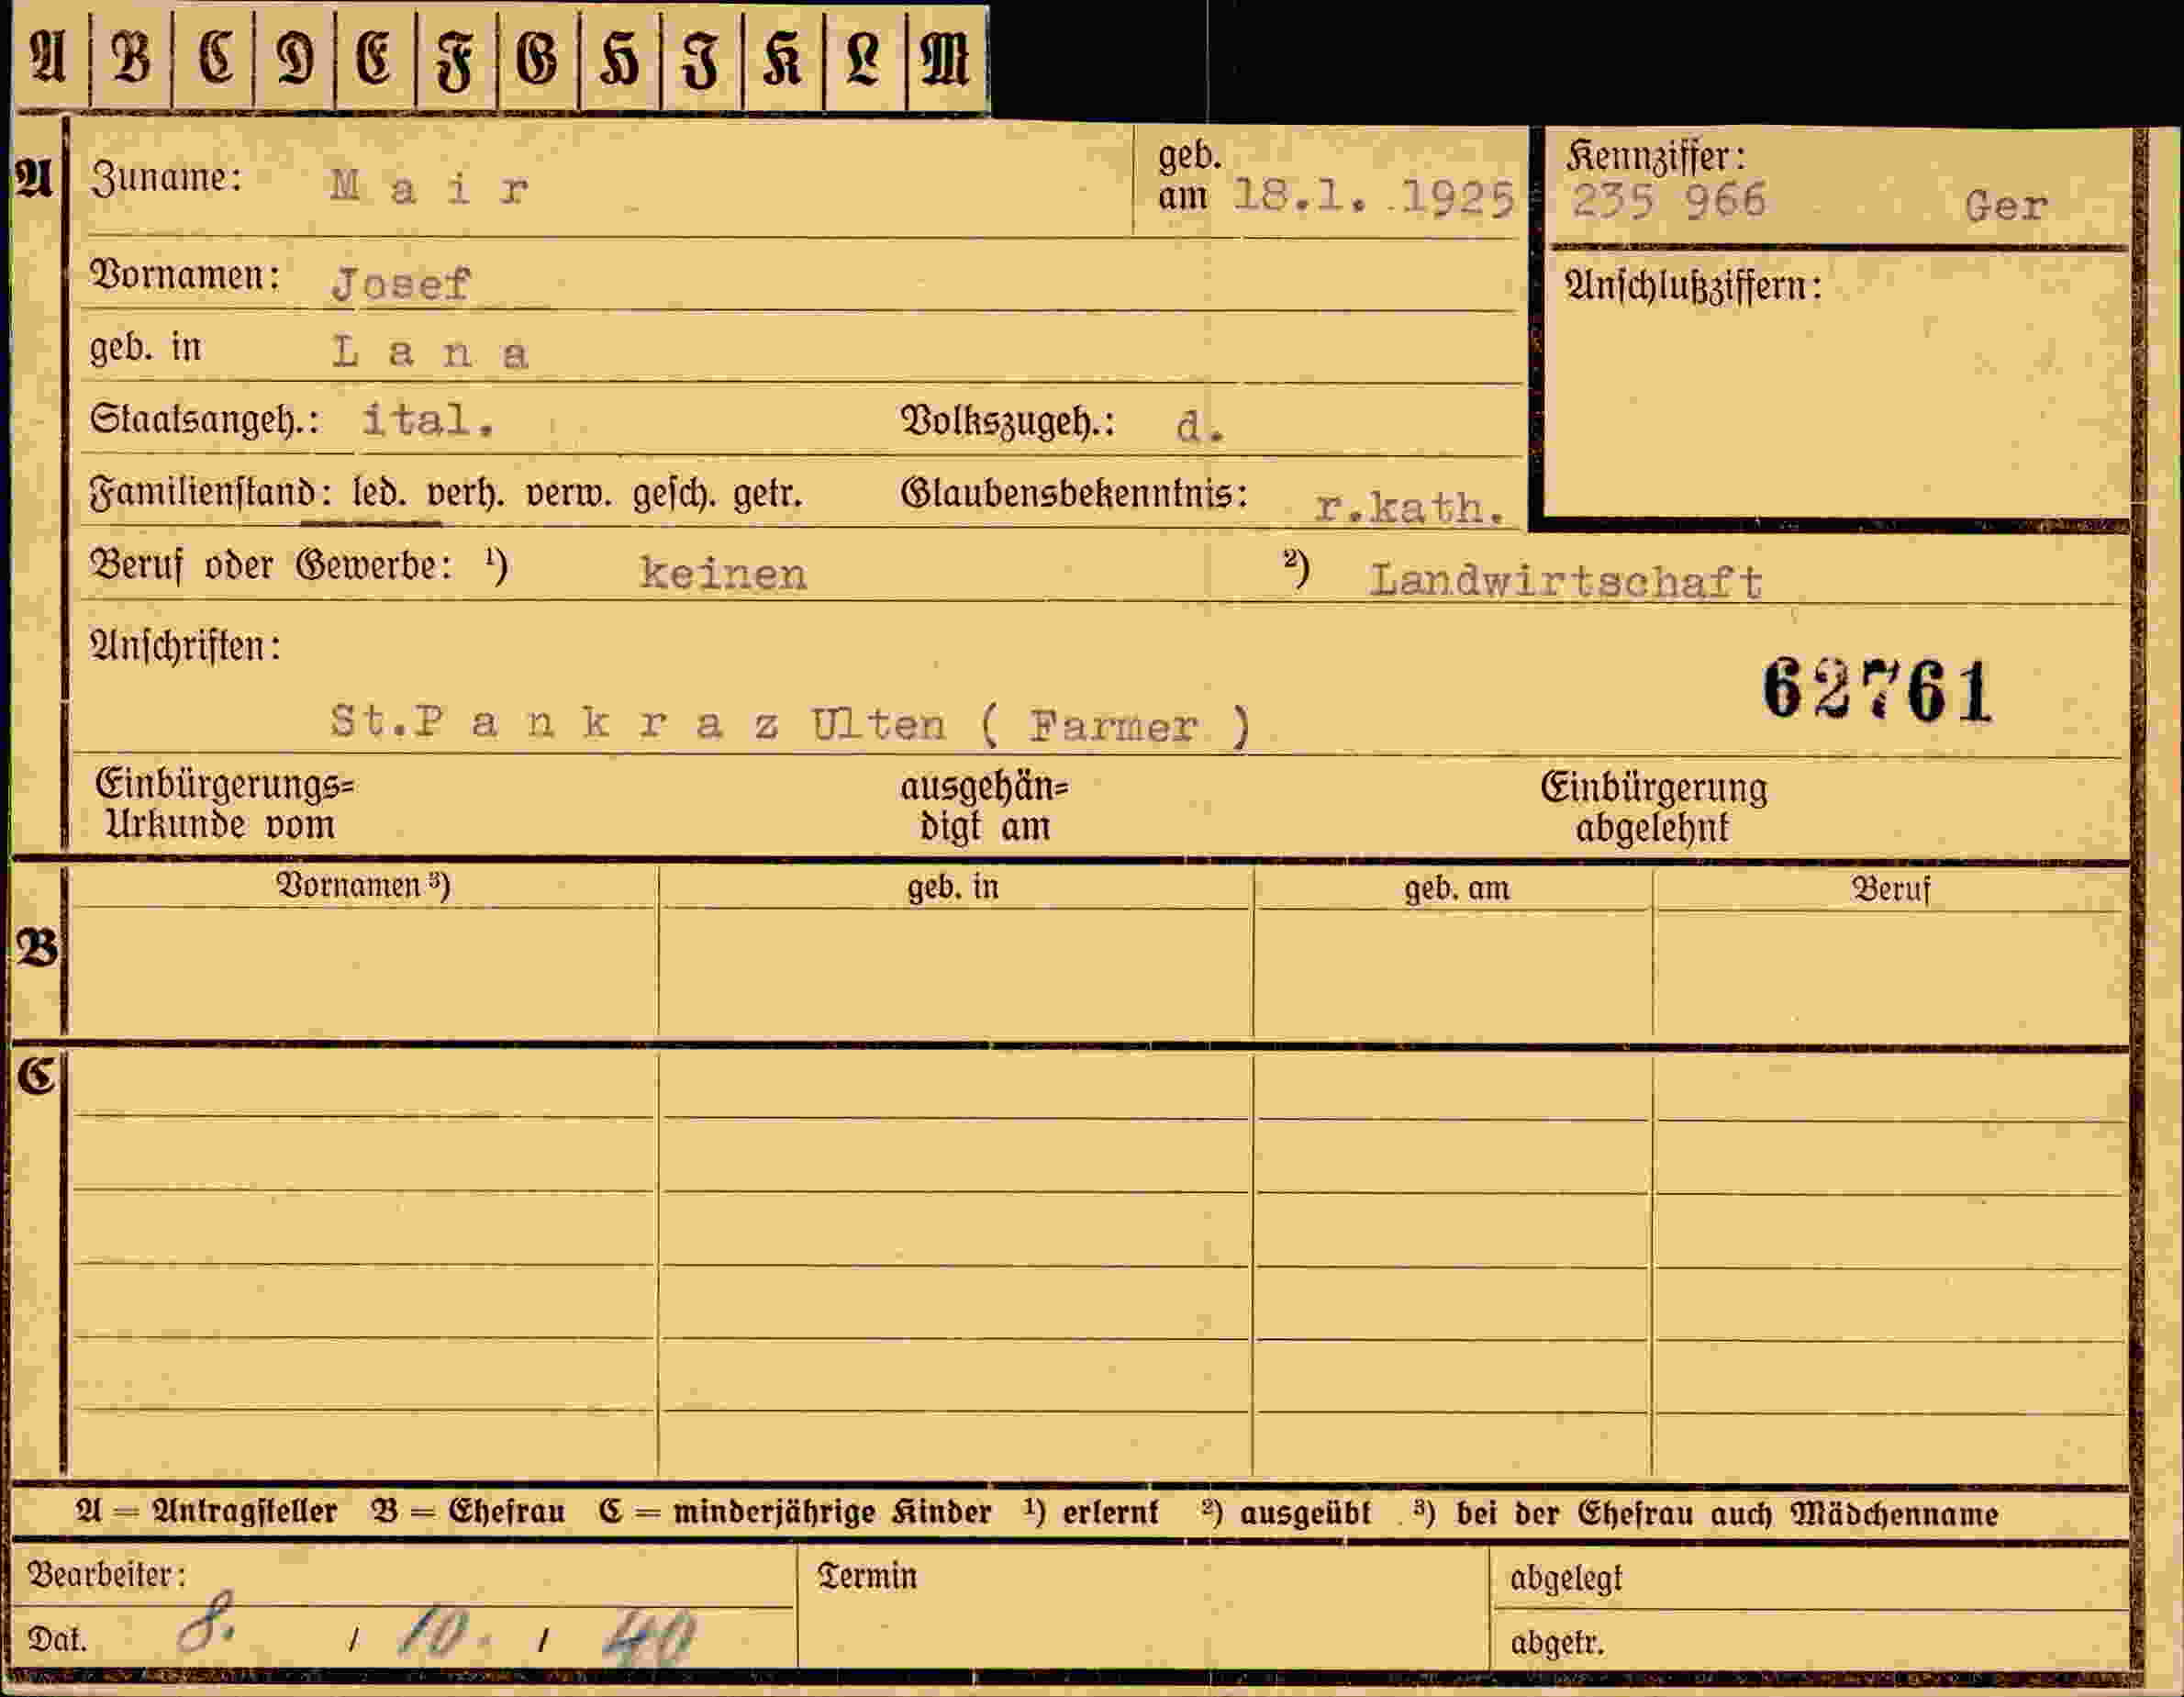 A B C D E F G H I K L M
A Zuname: Mair geb. am 18.1. 1925 Kennziffer: 235 966 Ger
Vornamen: Josef Anschlußziffern:
geb. in Lana
Staatsangeh.: ital. Volkszugeh.: d.
Familienstand: led. verh. verw. gesch. getr. Glaubensbekenntnis: r.kath.
Beruf oder Gewerbe: ¹) keinen ²) Landwirtschaft
Anschriften:
62761
St.Pankraz Ulten ( Farmer )
Einbürgerungs= ausgehän= Einbürgerung
Urkunde vom digt am abgelehnt
Vornamen ³) geb. in geb. am Beruf
B
C
A = Antragsteller B = Ehefrau C = minderjährige Kinder ¹) erlernt ²) ausgeübt ³) bei der Ehefrau auch Mädchenname
Bearbeiter: Termin abgelegt
Dat. 8. / 10. / 40 abgetr.